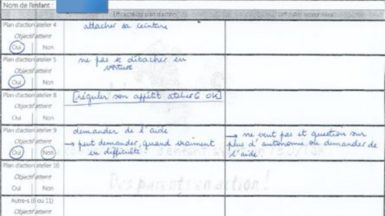 Nom de l'enfant :
Plan d'action atelier 4
attacher sa ceinture
Objectif atteint
Oui Non
Plan d'action atelier 5
ne pas se détacher en
voiture
Objectif atteint
Oui Non
Plan d'action atelier 8
[réguler son appétit atelier 6 OK]
Objectif atteint
Oui Non
Plan d'action atelier 9
demander de l'aide
→ ne veut pas et question sur
Objectif atteint
→ peut demander, quand vraiment
plus d'autonomie ou demander de
Oui Non
en difficulté
l'aide
Plan d'action atelier 10
Objectif atteint
Oui Non